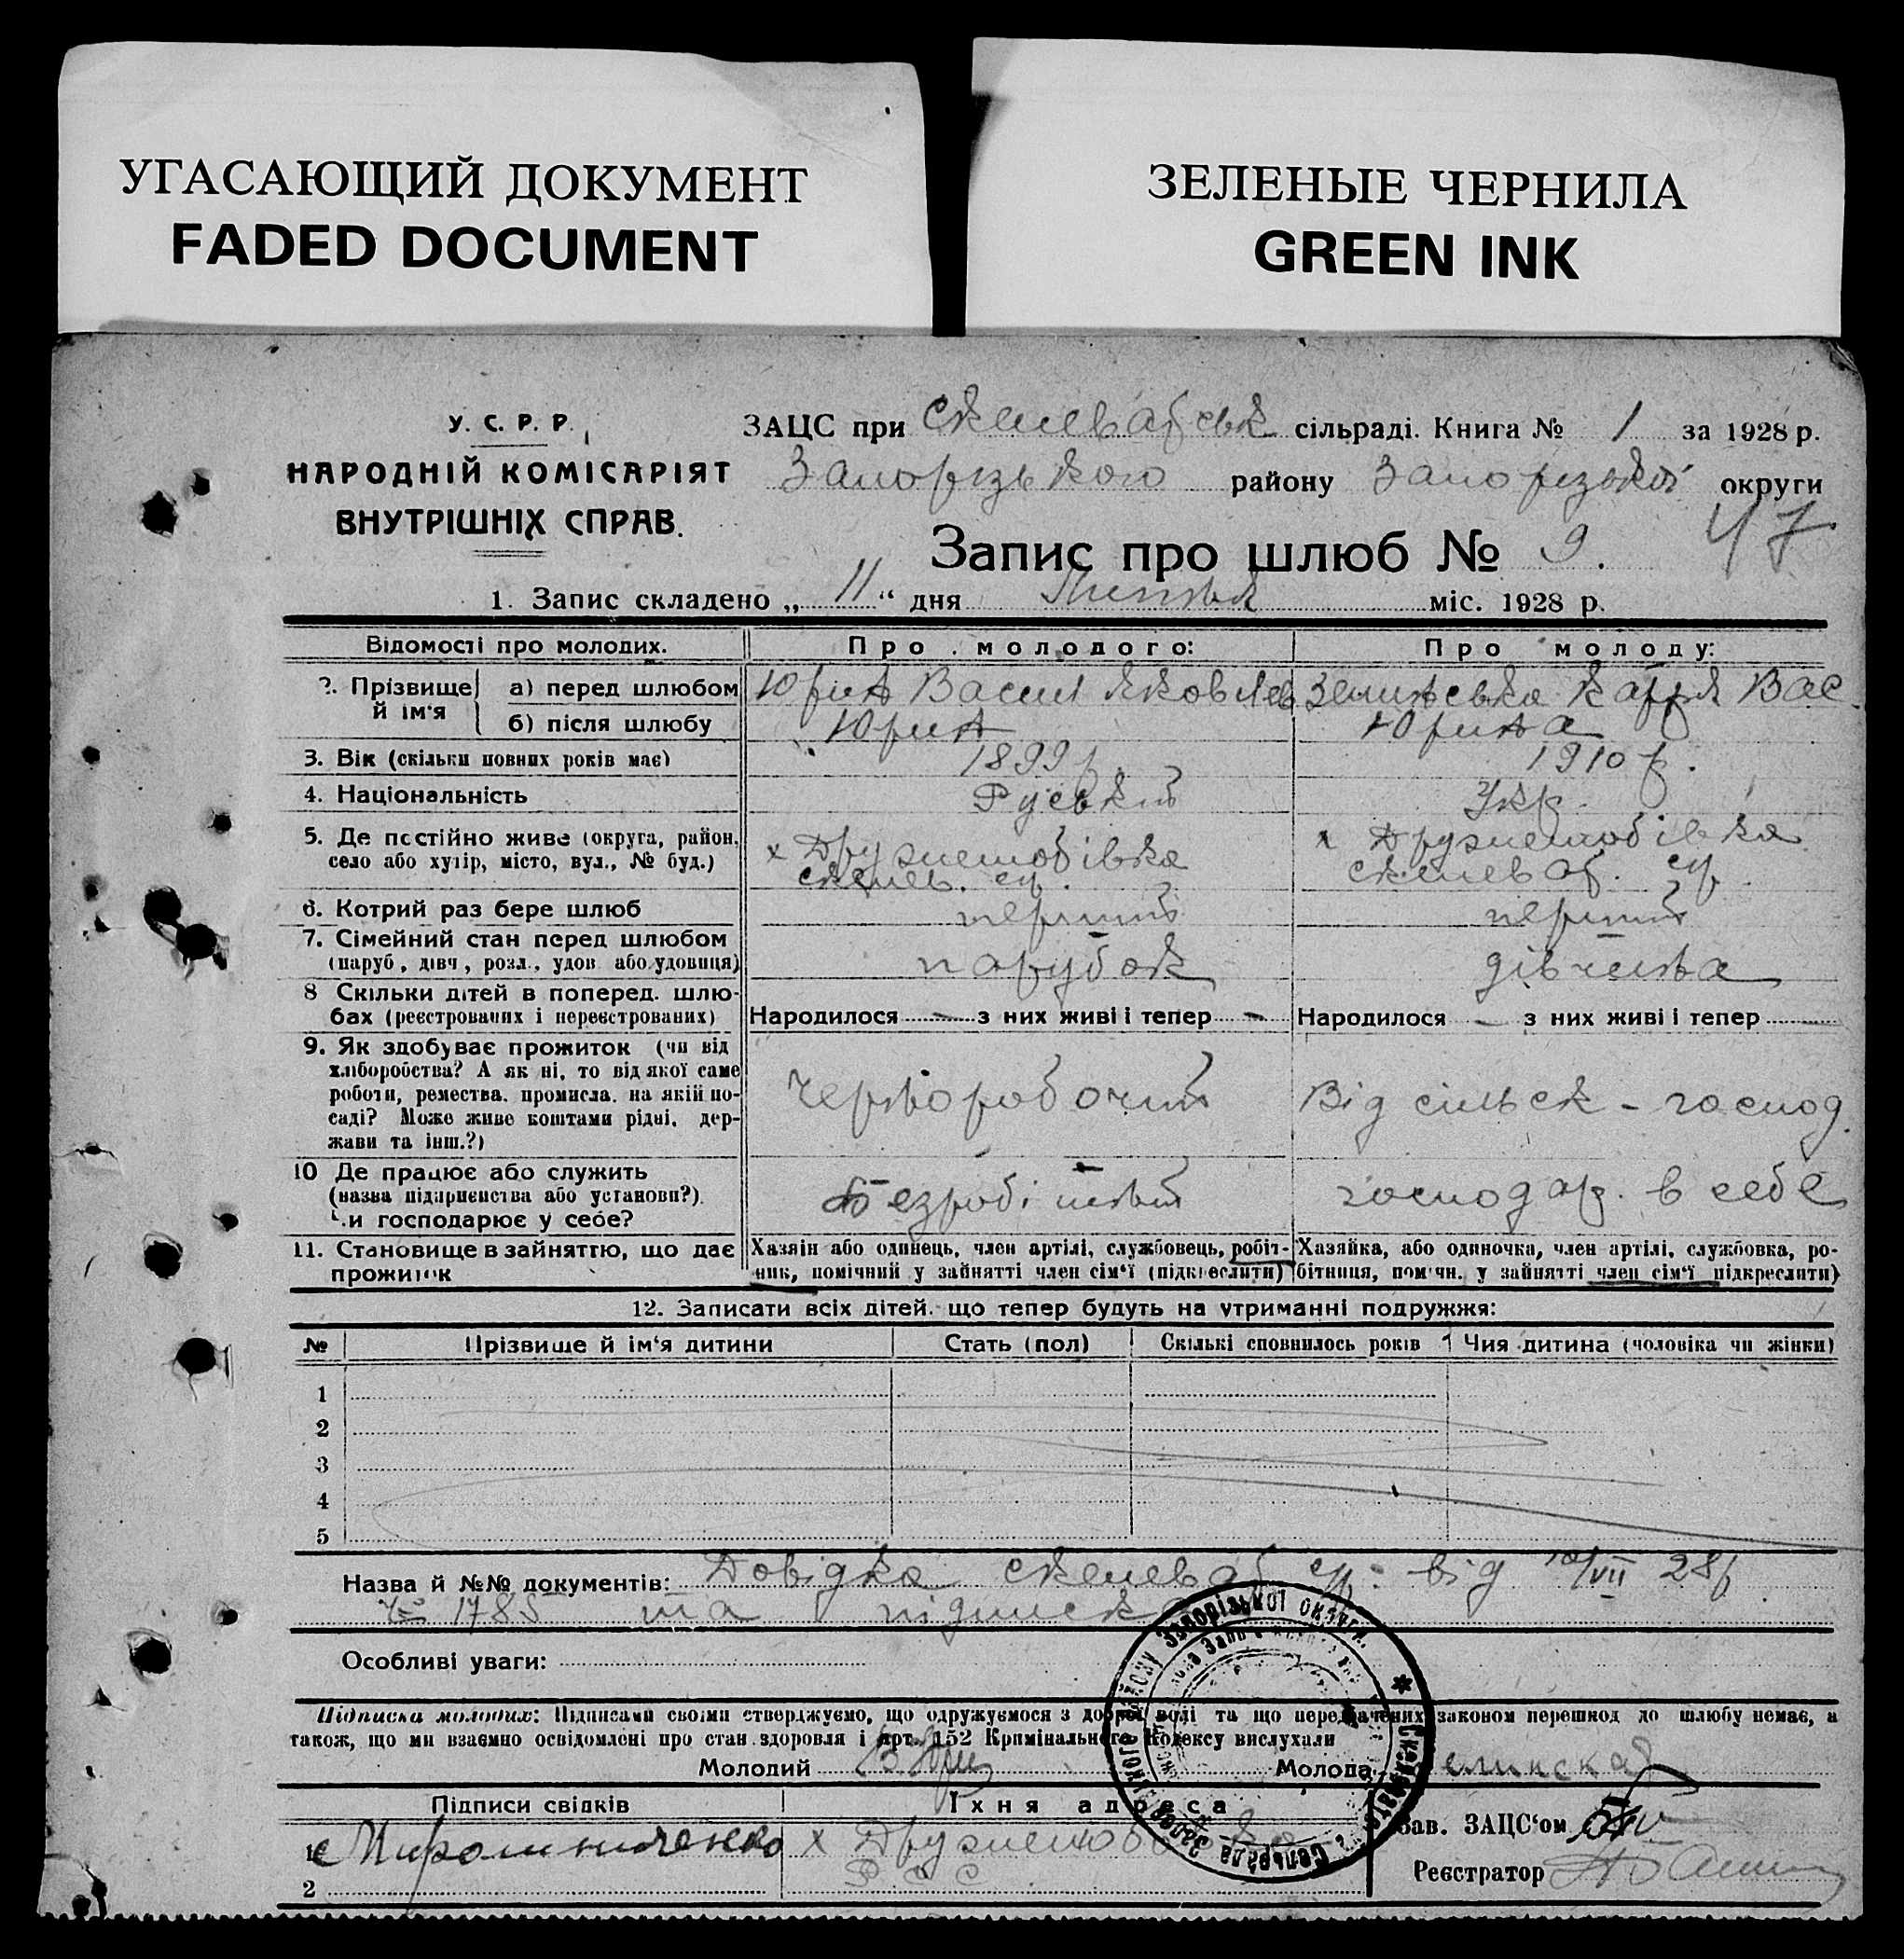 УГАСАЮЩИЙ ДОКУМЕНТ
FADED DOCUMENT
ЗЕЛЕНЫЕ ЧЕРНИЛА
GREEN INK
У. С. Р. Р.
НАРОДНІЙ КОМІСАРІЯТ
ВНУТРІШНІХ СПРАВ.
ЗАЦС при сільраді. Книга № 1 за 1928 р.
Запорізького району Запорізької округи
47
Запис про шлюб № 9.
1. Запис складено „ 11 “ дня Липня міс. 1928 р.
Відомості про молодих. Про молодого: Про молоду:
2. Прізвище й ім‘я
а) перед шлюбом Юрин Василь Яковлев Вас
б) після шлюбу Юрин Юрина
3. Вік (скільки повних років має) 1899 р. 1910 р.
4. Національність Руський Укр.
5. Де постійно живе (округа, район, х Дружелюбівка х Дружелюбівка
село або хутір, місто, вул., № буд.) скелев. ср. скелеват. ср.
6. Котрий раз бере шлюб перший перший
7. Сімейний стан перед шлюбом
(паруб., дівч., розл., удов. або удовиця) парубок дівчина
8 Скільки дітей в поперед. шлю-
бах (реєстрованих і нереєстрованих) Народилося — з них живі і тепер — Народилося — з них живі і тепер
9. Як здобуває прожиток (чи від
хліборобства? А як ні, то від якої саме
роботи, ремества, промисла, на якій по-
саді? Може живе коштами рідні, дер-
жави та інш.?)
Черноробочий Від сільськ - господ.
10 Де працює або служить
(назва підприємства або установи?).
Чи господарює у себе?
Безробітний господар. в себе
11. Становище в зайняттю, що дає
прожиток
Хазяін або одинець, член артілі, службовець, робіт-
ник, помічний у зайнятті член сім‘ї (підкреслити)
Хазяйка, або одиночка, член артілі, службовка, ро-
бітниця, помічн. у зайнятті член сім‘ї підкреслити)
12. Записати всіх дітей, що тепер будуть на утриманні подружжя:
№ Прізвище й ім‘я дитини Стать (пол) Скількі сповнилось років Чия дитина (чоловіка чи жінки)
1
2
3
4
5
Назва й №№ документів: Довідка скелеват ср. від 10/VII 28 р
№ 1785 та підписка
Особливі уваги:
Підписка молодих: Підписами своїми стверджуємо, що одружуємося з доброї волі та що передбачених законом перешкод до шлюбу немає, а
також, що ми взаємно освідомлені про стан здоров‘я і арт. 152 Кримінального Кодексу вислухали
Молодий Молода
Підписи свідків Їхня адреса
1 Мирошниченко х Дружелюбівка
2
Зав. ЗАЦС‘ом
Реєстратор
Запорізької округи